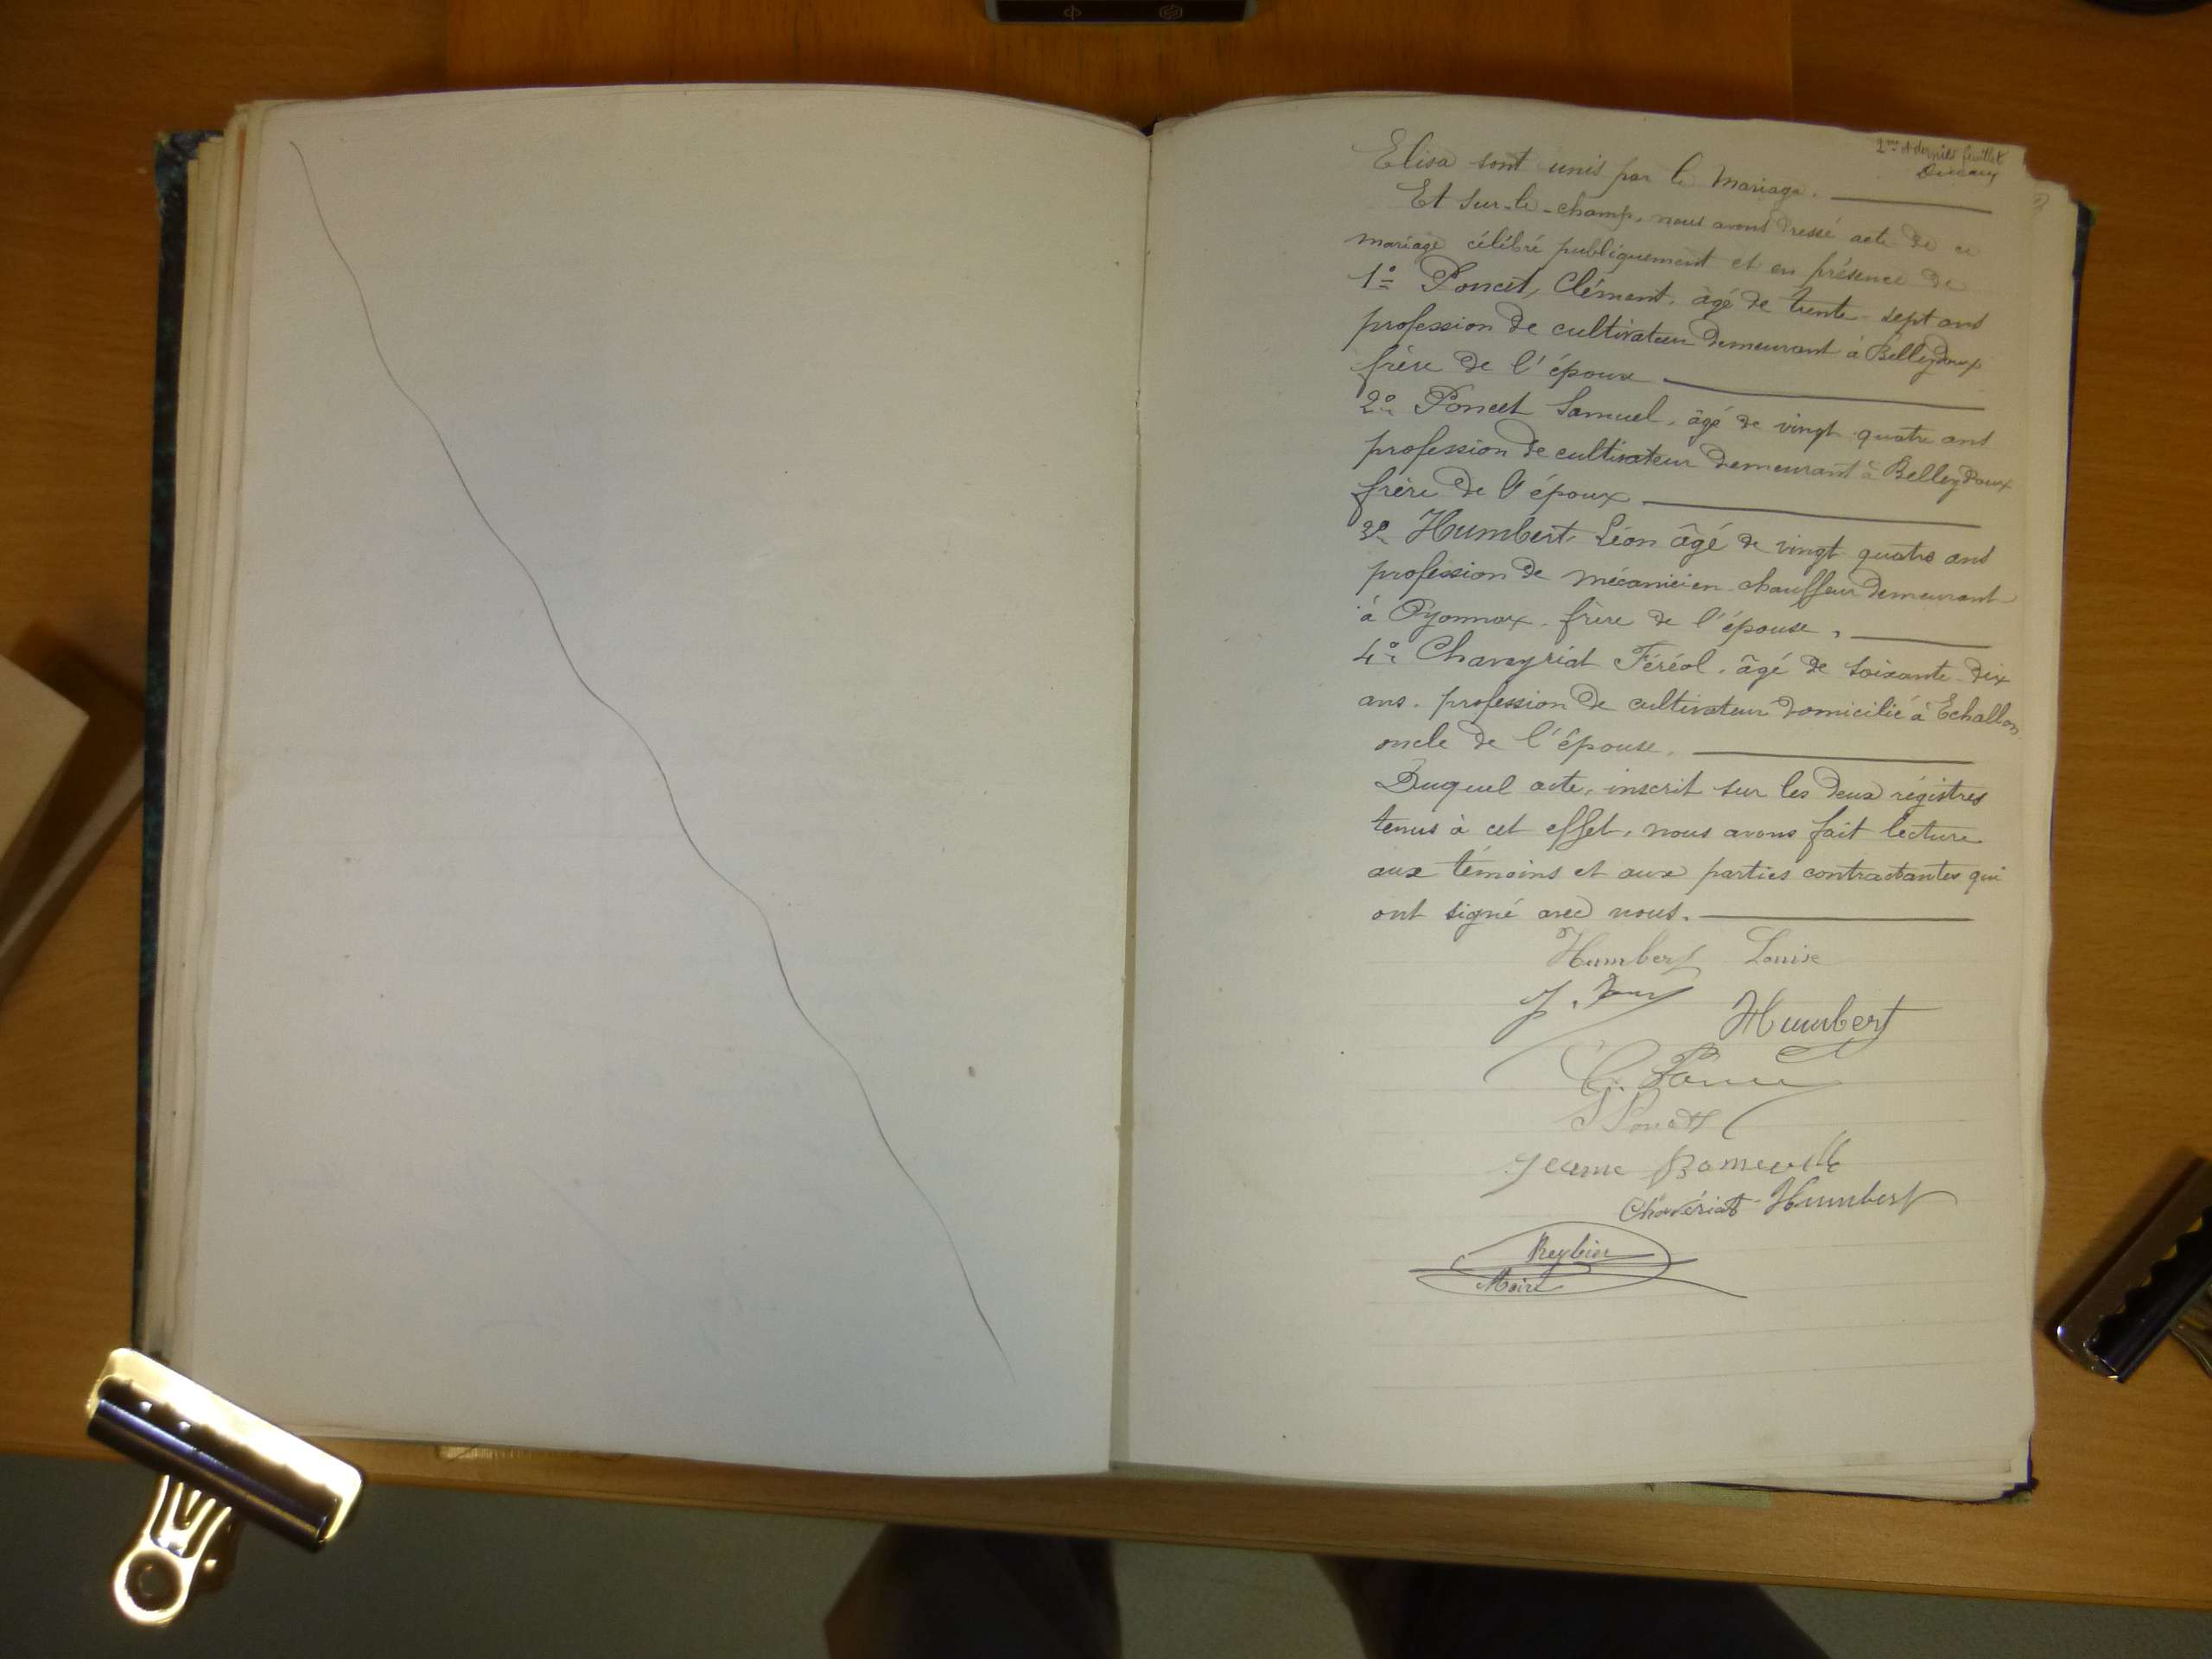 2me et dernier feuillet
Elisa sont unis par le Mariage.
Et sur-le-champ, nous avons dressé acte de ce
mariage célébré publiquement et en présence de
1° Poncet, Clément, âgé de trente-sept ans
profession de cultivateur demeurant à Belleydoux
frère de l'époux
2° Poncet Samuel, âgé de vingt quatre ans
profession de cultivateur demeurant à Belleydoux
frère de l'époux
3° Humbert Léon âgé de vingt quatre ans
profession de mécanicien-chauffeur demeurant
à Oyonnax, frère de l'épouse,
4° Chaveyriat Féréol, âgé de soixante-dix
ans, profession de cultivateur domicilié à Echallon
oncle de l'épouse.
Duquel acte, inscrit sur les deux régistres
tenus à cet effet, nous avons fait lecture
aux témoins et aux parties contractantes qui
ont signé avec nous.
Humbert Louise
J.
Humbert
C. Poncet
S Poncet
Jeanne
Chavériat-Humbert
Reybier
Maire